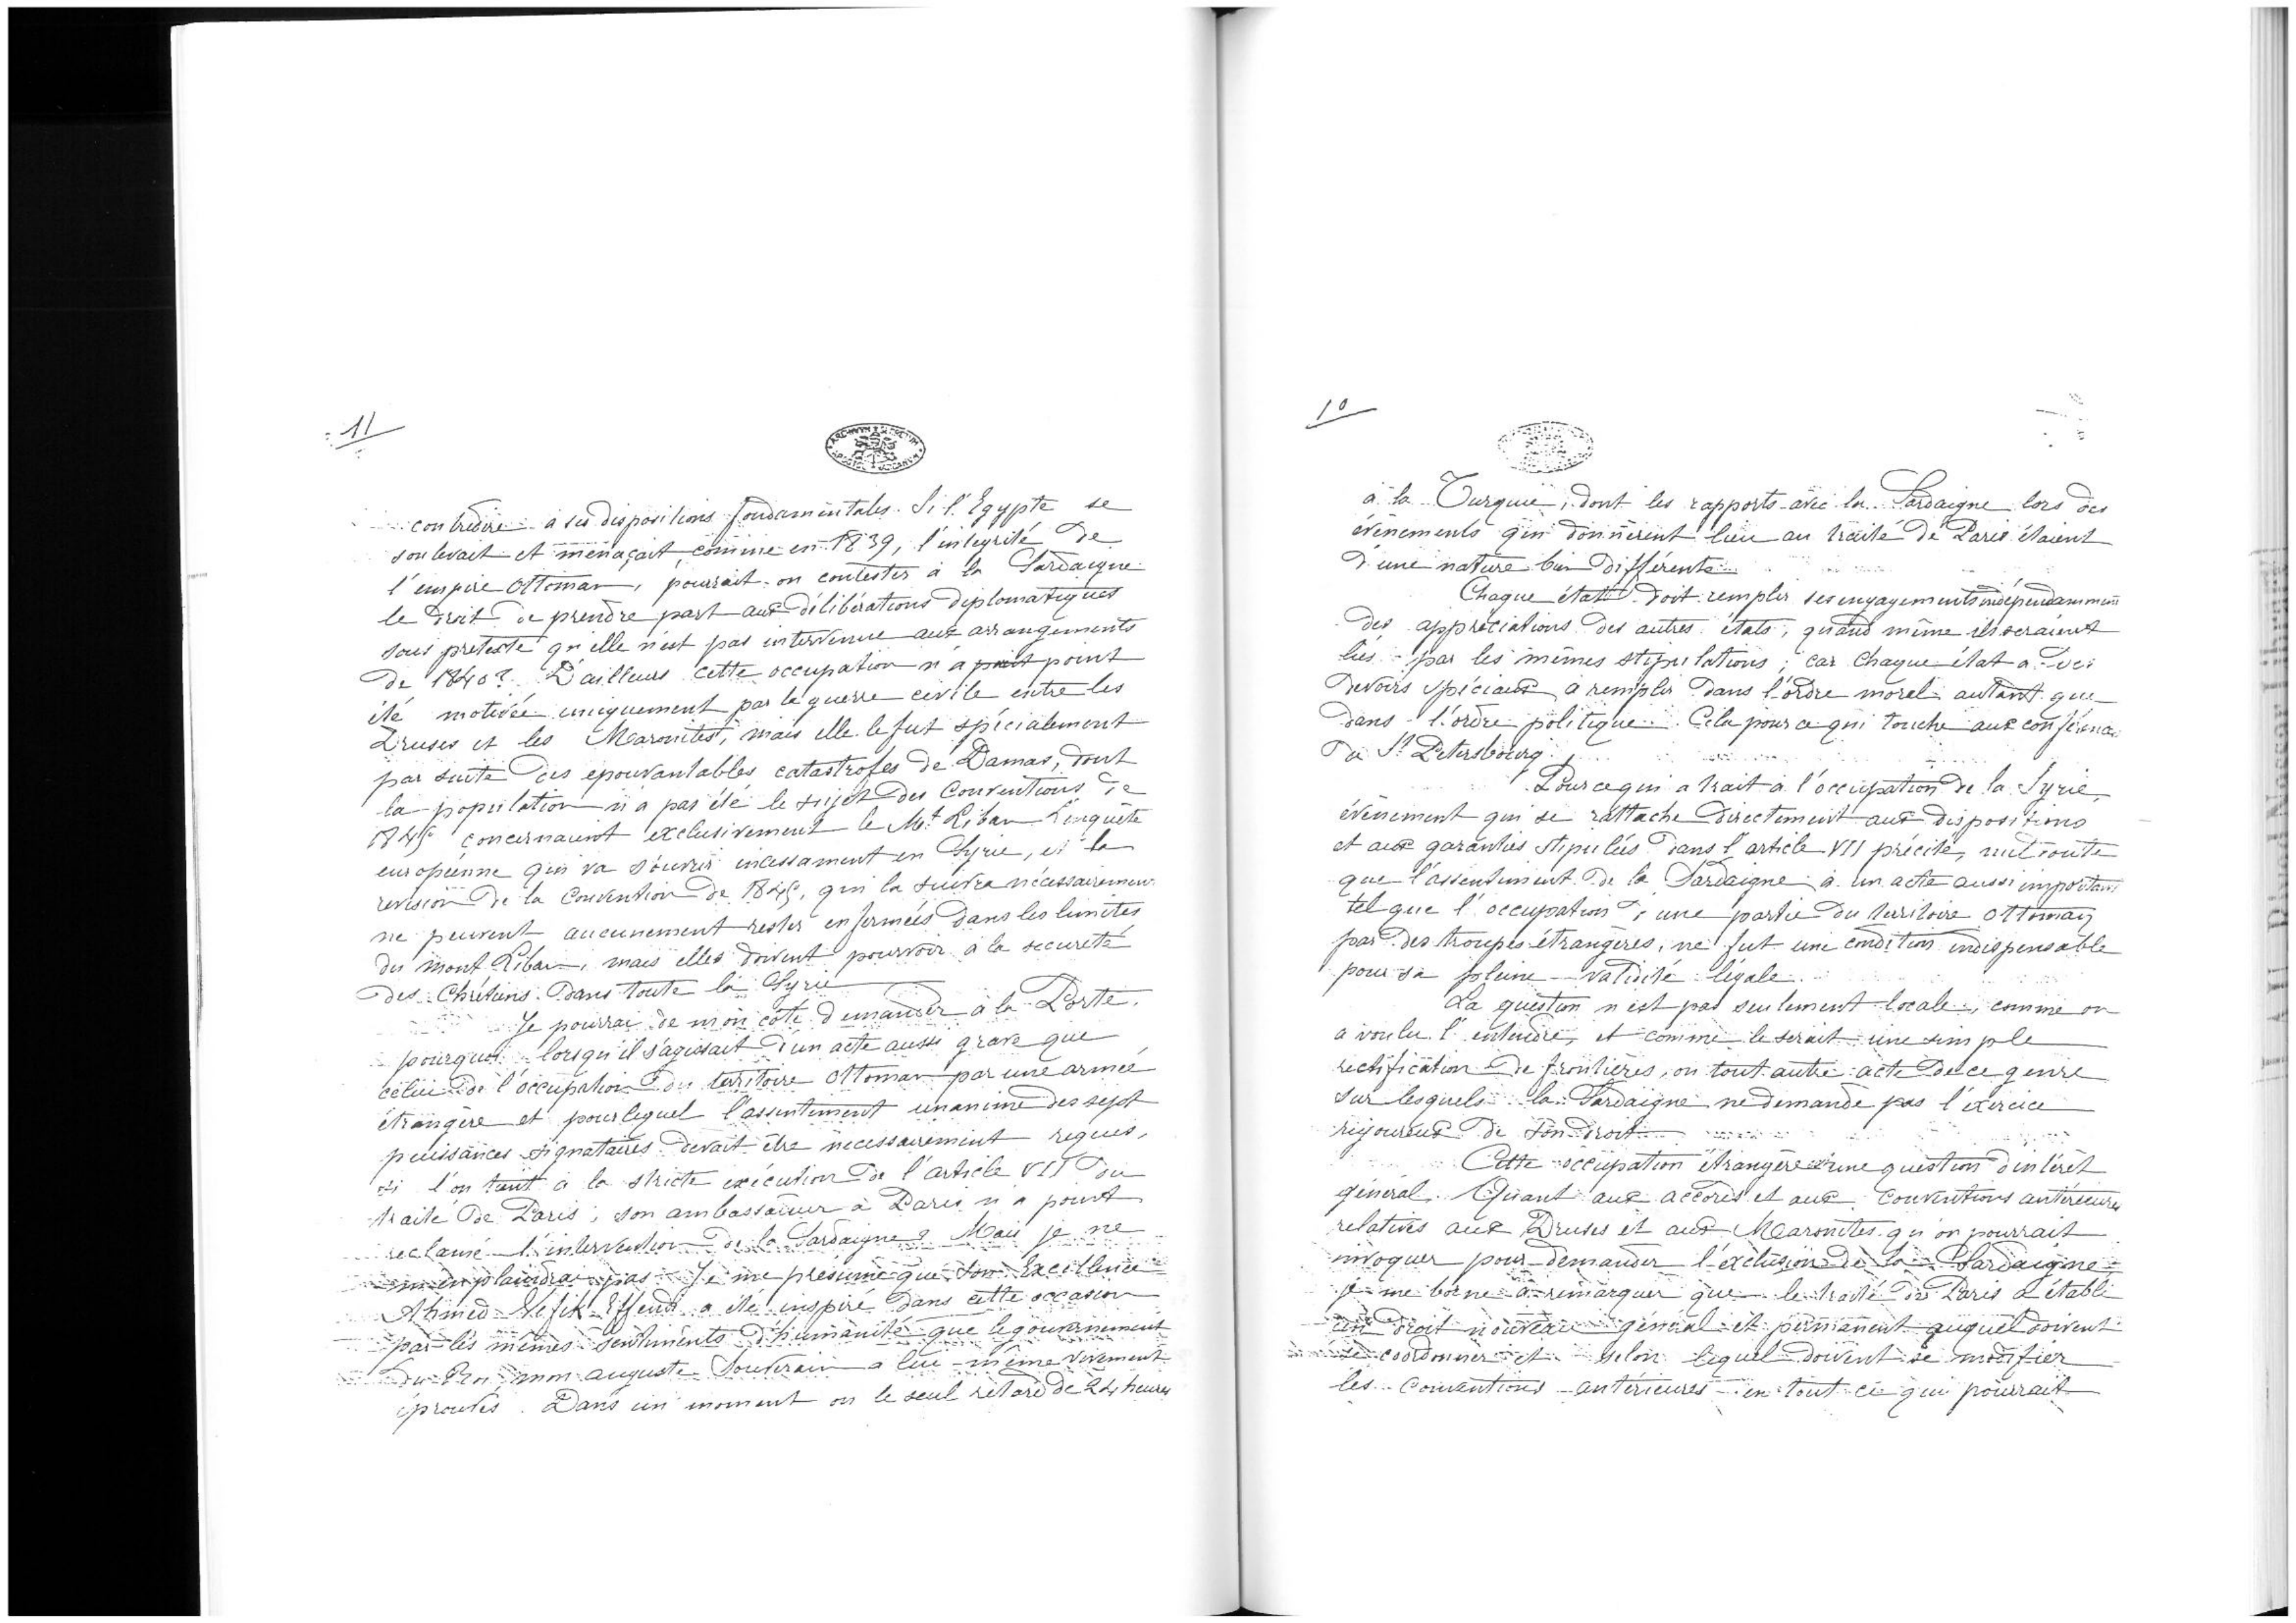 10
à la Turquie, dont les rapports avec la Sardaigne lors des
évènements qui donnèrent lieu au traité de Paris étaient
d'une nature bien différente.
Chaque état doit remplir ses engagements indépendamment
des appréciations des autres états, quand même ils seraient
liés par les mêmes stipulations; car chaque état a des
devoirs spéciaux à remplir dans l'ordre morel autant que
dans l'ordre politique. Cela pour ce qui touche aux conférences
de St Petersbourg.
Pour ce qui a trait à l'occupation de la Syrie,
évènement qui se rattache directement aux dispositions
et aux garanties stipulés dans l'article VII précité, nul doute
que l'assentiment de la Sardaigne à un acte aussi important
tel que l'occupation d'une partie du territoire ottoman
par des troupes étrangères, ne fut une condition indispensable
pour sa pleine validité légale.
La question n'est pas seulement locale, comme on
a voulu l'entendre, et comme le serait une simple
rectification de frontières, ou tout autre acte de ce genre
sur lesquels la Sardaigne ne demande pas l'exercice
rigoureux de son droit.
Cette occupation étrangère une question d'intérêt
général. Quant aux accords et aux conventions antérieures
relatives aux Druses et aux Maronites qu'on pourrait
invoquer pour demander l'exclusion de la Sardaigne
je me borne à remarquer que le traité de Paris a établi
un droit nouveau général et permanent auquel doivent
se coordonner et selon lequel doivent se modifier
les conventions antérieures en tout ce qui pourrait
11
contredire à ses dispositions fondamentales. Si l'Egypte se
soulevait et menaçait, comme en 1839, l'intégrité de
l'empire Ottoman, pourrait-on contester à la Sardaigne
le droit de prendre part aux délibérations diplomatiques
sous pretexte qu'elle n'eut pas intervenue aux arrangements
de 1840? D'ailleurs cette occupation n'a point
été motivée uniquement par la guerre civile entre les
Druses et les Maronites, mais elle le fut spécialement
par suite des epouvantables catastrofes de Damas, dont
la population n'a pas été le sujet des Conventions de
1845 concernaient exclusivement le Mt Liban. L'enquête
européenne qui va s'ouvrir incessament en Syrie, et la
revision de la Convention de 1845, qui la suivra nécessairement
ne peuvent aucunement rester enfermées dans les limites
du mont Liban, mais elles doivent pourvoir à la secureté
des Chrétiens dans toute la Syrie
Je pourrai de mon coté demander à la Porte,
pourquoi lorsqu'il s'agissait d'un acte aussi grave que
celui de l'occupation du territoire Ottoman par une armée
étrangère et pour lequel l'assentiment unanime des sept
puissances signataires devait être necessairement requis,
si l'on tient à la stricte exécution de l'article VII du
traité de Paris, son ambassadeur à Paris n'a point
reclamé l'intervention de la Sardaigne? Mais je ne
m'en plaindrai pas. Je me présume que Son Excellence
Ahmed Vefik Effendi a été inspiré dans cette occasion
par les mêmes sentiments d'humanité que le gouvernement
du Roi mon auguste Souverain a lui-même vivement
éprouvés. Dans un moment ou le seul retard de 24 heures